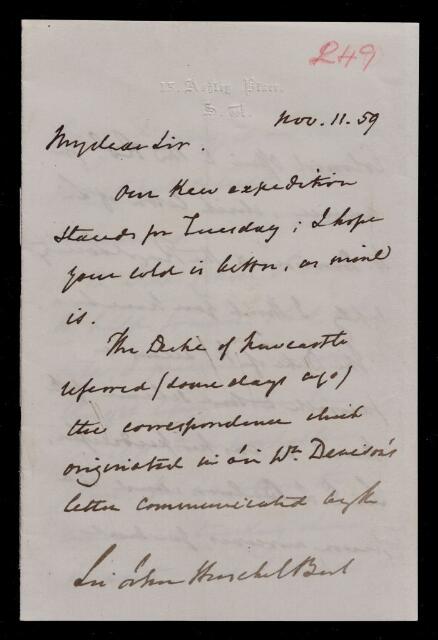 249
18. Ashley Place.
S. W.
Nov. 11. 59
My dear Sir.
Our Kew expedition
stands for Tuesday ; I hope
your cold is better, as mine
is.
The Duke of Newcastle
referred (some days ago)
the correspondence which
originated in Sir Wm Denison's
letter communicated by the
Sir John Herschel Bart